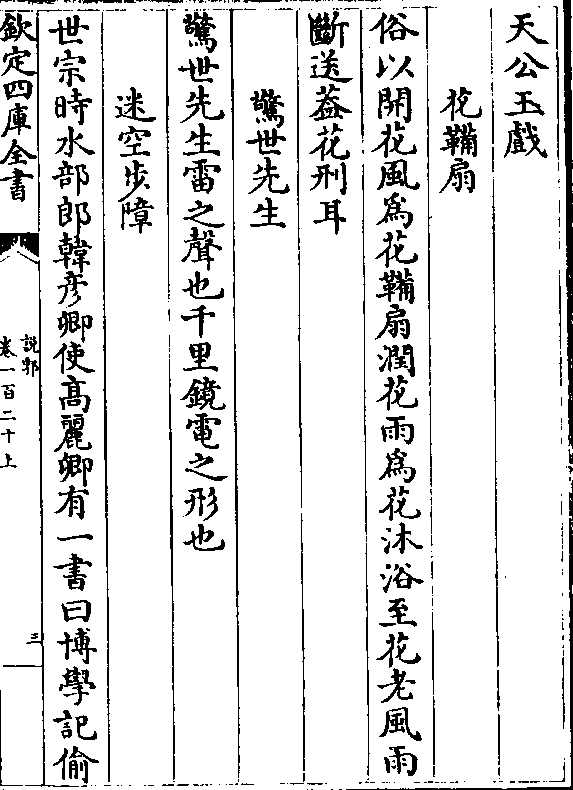 天公玉戲
花鞴扇
俗以開花風爲花鞴扇潤花雨爲花沐浴至花老風雨
斷送葢花刑耳
驚世先生
驚世先生雷之聲也千里鏡電之形也
迷空步障
世宗時水部郎韓彦卿使高麗卿有一書曰博學記偷
欽定四庫全書
說郛
卷一百二十上
三